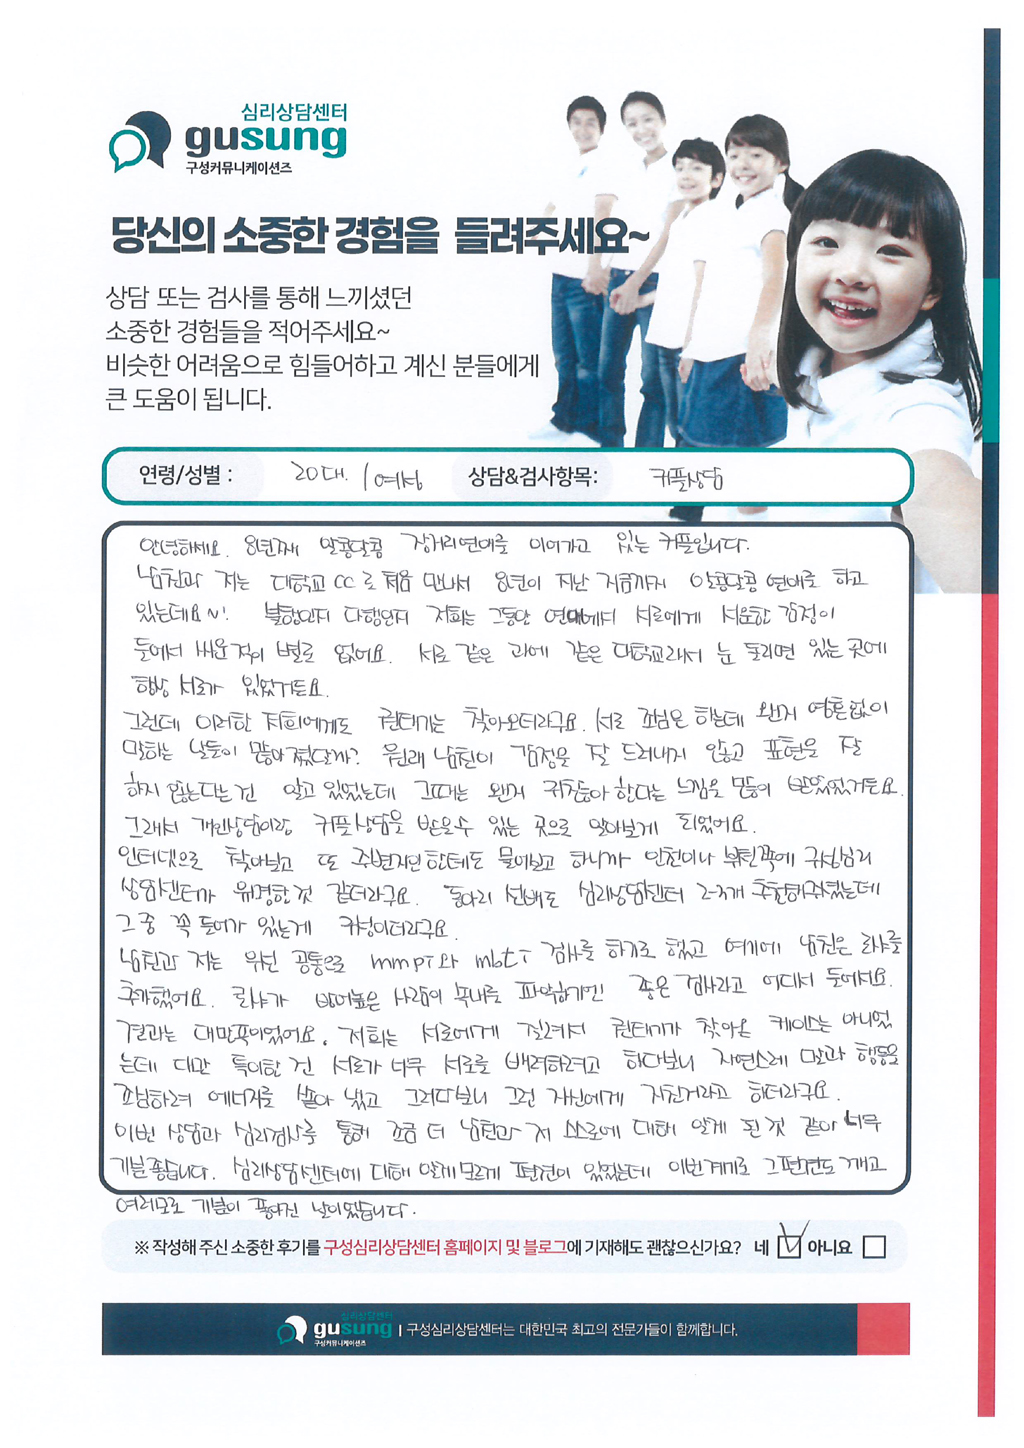 심리상담센터
gusung
구성커뮤니케이션즈
당신의 소중한 경험을 들려주세요~
상담 또는 검사를 통해 느끼셨던
소중한 경험들을 적어주세요~
비슷한 어려움으로 힘들어하고 계신 분들에게
큰 도움이 됩니다.
연령/성별 : 20대. / 여성 상담&검사항목: 커플상담
안녕하세요. 8년째 알콩달콩 장거리연애를 이어가고 있는 커플입니다.
남친과 저는 대학교 CC로 처음 만나서 8년이 지난 지금까지 알콩달콩 연애를 하고
있는데요~! 불행인지 다행인지 저희는 그동안 연애에서 서로에게 서운한 감정이
들어서 싸운적이 별로 없어요. 서로 같은 과에 같은 대학교라서 눈 돌리면 있는 곳에
항상 서로가 있었거든요.
그런데 이러한 저희에게도 권태기는 찾아오더라구요. 서로 조심은 하는데 왠지 영혼없이
말하는 날들이 많아졌달까? 원래 남친이 감정을 잘 드러내지 않고 표현을 잘
하지 않는다는건 알고 있었는데 그때는 왠지 귀찮아 한다는 느낌을 많이 받았었거든요.
그래서 개인상담이랑 커플상담을 받을수 있는 곳으로 알아보게 되었어요.
인터넷으로 찾아보고 또 주변지인한테도 물어보고 하니까 인천이나 부천쪽에 구성심리
상담센터가 유명한것 같더라구요. 동아리 선배도 심리상담센터 2-3개 추천해줬었는데
그 중 꼭 들어가 있는게 구성이더라구요.
남친과 저는 우선 공통으로 mmpi와 mbti 검사를 하기로 했고 여기에 남친은 로샤를
추가했어요. 로샤가 방어높은 사람의 속내를 파악하기엔 좋은 검사라고 어디서 들어서요.
결과는 대만족이었어요. 저희는 서로에게 질려서 권태기가 찾아온 케이스는 아니었
는데 다만 특이한 건 서로가 너무 서로를 배려하려고 하다보니 자연스레 말과 행동을
조심하려 에너지를 쏟아 냈고 그러다보니 그런 자신에게 지친거라고 하더라구요.
이번 상담과 심리검사를 통해 조금 더 남친과 저 스스로에 대해 알게 된것 같아 너무
기분좋습니다. 심리상담센터에 대해 알게모르게 편견이 있었는데 이번계기로 그편견도 깨고
여러모로 기분이 좋아진 날이었습니다.
※ 작성해 주신 소중한 후기를 구성심리상담센터 홈페이지 및 블로그에 기재해도 괜찮으신가요? 네 아니요
심리상담센터
gusung
구성커뮤니케이션즈
| 구성심리상담센터는 대한민국 최고의 전문가들이 함께합니다.